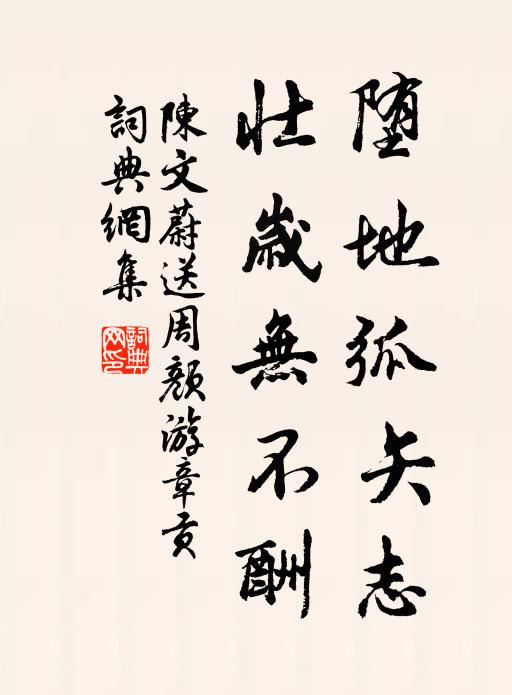 堕地弧矢志
壮歳無不酬
陳文蔚送周顔游章貢
詞典網集
詞典網印